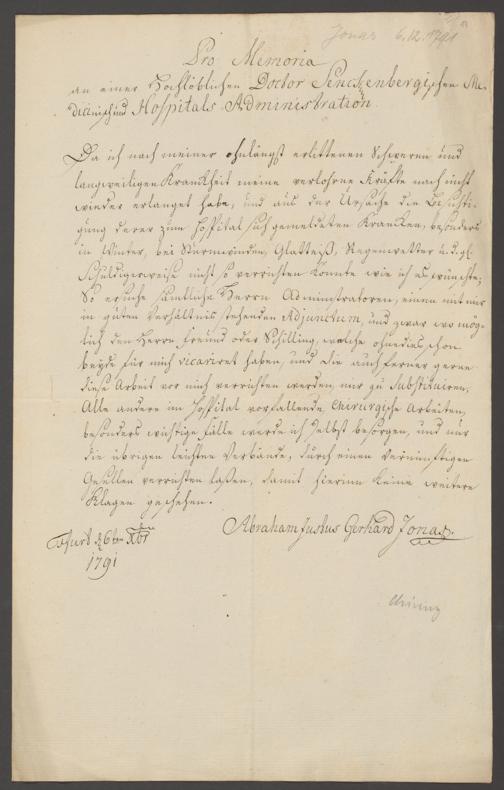 Jonas 6.12.1791
Pro Memoria
an einer Hochlöblichen Doctor Senckenbergischen Me-
dicinisch und Hospitals-Administration.
Da ich nach meiner ohnlängst erlittenen Schweren und
langweiligen Kranckheit meine verlohrne Kräfte noch nicht
wieder erlanget habe, und aus der Ursache die Besichti-
gung derer zum Hospital sich gemeldeten Krancken, besonders
in Winter, bei Sturmwinden, Glatteiß, Regenwetter u.d.gl.
Schuldigerweise nicht so verrichten konnte wie ich es wünschte;
So ersuche sämtliche Herrn Administratoren, einen mit mir
in guten Verhältnis stehenden Adjunctum, und zwar wo mög-
lich den Herrn Freund oder Schilling, welche ohnedies schon
beyde für mich vicariret haben, und die auch ferner gerne
diese Arbeit vor mich verrichten werden, mir zu Substituiren.
Alle andere im Hospital vorfallende, Chirurgische Arbeiten,
besonders wichtige Fälle werde ich selbst besorgen, und nur
die übrigen leichten Verbände, durch einen vernünftigen
Gesellen verrichten laßen, damit hierinn keine weitere
Klagen geschehen.
Abraham Justus Gerhard Jonas.
Ffurt d 6ten Xbr
1791